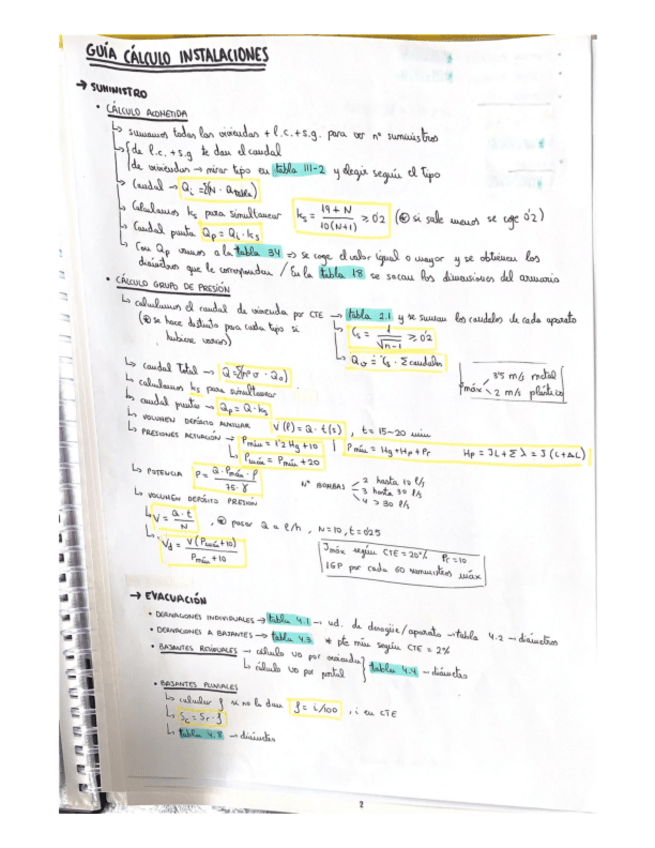 GUÍA CÁLCULO INSTALACIONES
→ SUMINISTRO
• CÁLCULO ACOMETIDA
↳ sumamos todas las viviendas + l.c. + s.g. para ver nº suministros
↳ { de l.c. + s.g te dan el caudal
de viviendas → mirar tipo en tabla III-2 y elegir según el tipo
↳ Caudal → Qi = Σ(N · Qtabla)
↳ Calculamos ks para simultanear ks = 19 + N / 10(N+1) ≥ 0'2 (si sale menos se coge 0'2)
↳ Caudal punta Qp = Qi · ks
↳ Con Qp vamos a la tabla 34 ⇒ se coge el valor igual o mayor y se obtienen los
diámetros que le corresponden / En la tabla 18 se sacan las dimensiones del armario
• CÁLCULO GRUPO DE PRESIÓN
↳ calculamos el caudal de vivienda por CTE → tabla 2.1 y se suman los caudales de cada aparato
(se hace distinto para cada tipo si
hubiese varios)
↳ Cs = 1 / √n-1 ≥ 0'2
↳ Qv = Cs · Σcaudales
↳ caudal Total → Q = Σ(nº v · Qv)
↳ calculamos ks para simultanear
↳ caudal punta → Qp = Q · ks
Vmáx 3'5 m/s metal
2 m/s plástico
↳ VOLUMEN DEPÓSITO AUXILIAR V(l) = Q · t(s) , t = 15-20 min
↳ PRESIONES ACTUACIÓN → Pmín = 1'2 Hg + 10 | Pmín = Hg + Hp + Pr Hp = JL + Σλ = J (L + ΔL)
↳ Pmáx = Pmín + 20
↳ POTENCIA P = Q · Pmáx · ρ / 75 · γ
Nº BOMBAS 2 hasta 10 l/s
3 hasta 30 l/s
4 > 30 l/s
↳ VOLUMEN DEPÓSITO PRESIÓN
↳ V = Q · t / N , pasar Q a l/h , N = 10, t = 0'25
↳ Vd = V (Pmáx + 10) / Pmín + 10
Jmáx según CTE = 20% Pr = 10
1GP por cada 60 suministros máx
→ EVACUACIÓN
• DERIVACIONES INDIVIDUALES → tabla 4.1 → ud. de desagüe/aparato → tabla 4.2 → diámetros
• DERIVACIONES A BAJANTES → tabla 4.3 * pte mín según CTE = 2%
• BAJANTES RESIDUALES → cálculo UD por vivienda
↳ cálculo UD por portal } tabla 4.4 → diámetros
• BAJANTES PLUVIALES
↳ calcular f si no la dan f = i/100 , i en CTE
↳ Sc = Sr · f
↳ tabla 4.8 → diámetros
2